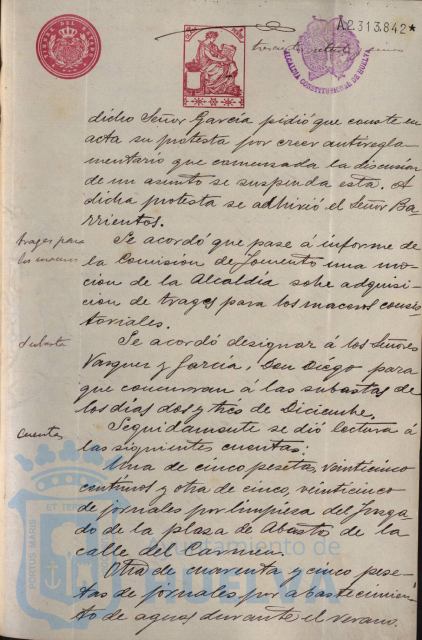 A2.313.842*
ALCALDIA CONSTITUCIONAL DE HUELVA
dicho Señor García pidió que conste en
acta su protesta por creer antiregla-
mentario que comenzada la discusión
de un asunto se suspenda esta. A
dicha protesta se adhirió el Señor Ba-
rrientos.
trages para
los maceros
Se acordó que pase á informe de
la Comisión de Fomento una mo-
ción de la Alcaldía sobe adquisi-
ción de trages para los maceros consis-
toriales.
Subasta
Se acordó designar á los Señores
Vazquez y García, Don Diego para
que concurran á las subastas de
los días dos y trés de Diciembre.
Cuentas
Seguidamente se dió lectura á
las siguientes cuentas:
Una de cinco pesetas, veinticinco
centimos y otra de cinco, veinticinco
de jornales por limpieca del Juzga-
do de la plasa de Abasto de la
calle del Carmen.
Otra de cuarenta y cinco pese-
tas de jornales por abastecimien-
to de aguas durante el verano.
PORTUS MARIS
ET TER
Ayuntamiento de
HUELVA